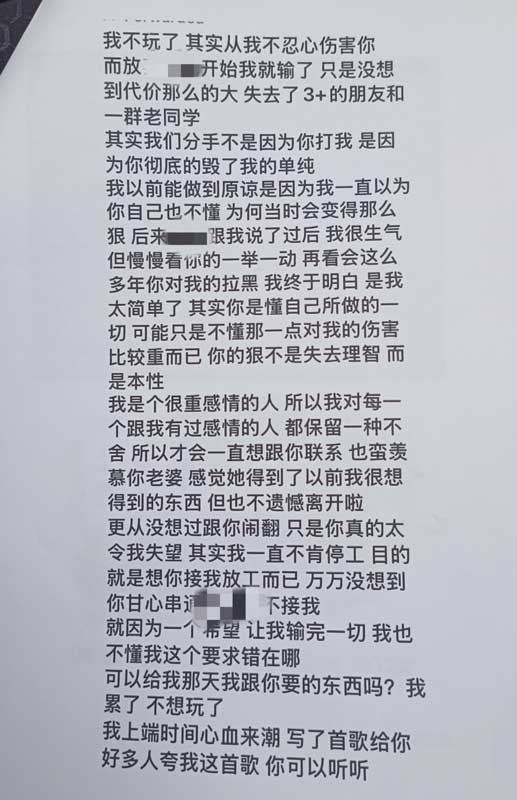 我不玩了 其实从我不忍心伤害你
而放 开始我就输了 只是没想
到代价那么的大 失去了3+的朋友和
一群老同学
其实我们分手不是因为你打我 是因
为你彻底的毁了我的单纯
我以前能做到原谅是因为我一直以为
你自己也不懂 为何当时会变得那么
狠 后来 跟我说了过后 我很生气
但慢慢看你的一举一动 再看会这么
多年你对我的拉黑 我终于明白 是我
太简单了 其实你是懂自己所做的一
切 可能只是不懂那一点对我的伤害
比较重而已 你的狠不是失去理智 而
是本性
我是个很重感情的人 所以我对每一
个跟我有过感情的人 都保留一种不
舍 所以才会一直想跟你联系 也蛮羡
慕你老婆 感觉她得到了以前我很想
得到的东西 但也不遗憾离开啦
更从没想过跟你闹翻 只是你真的太
令我失望 其实我一直不肯停工 目的
就是想你接我放工而已 万万没想到
你甘心串通 不接我
就因为一个希望 让我输完一切 我也
不懂我这个要求错在哪
可以给我那天我跟你要的东西吗？我
累了 不想玩了
我上端时间心血来潮 写了首歌给你
好多人夸我这首歌 你可以听听